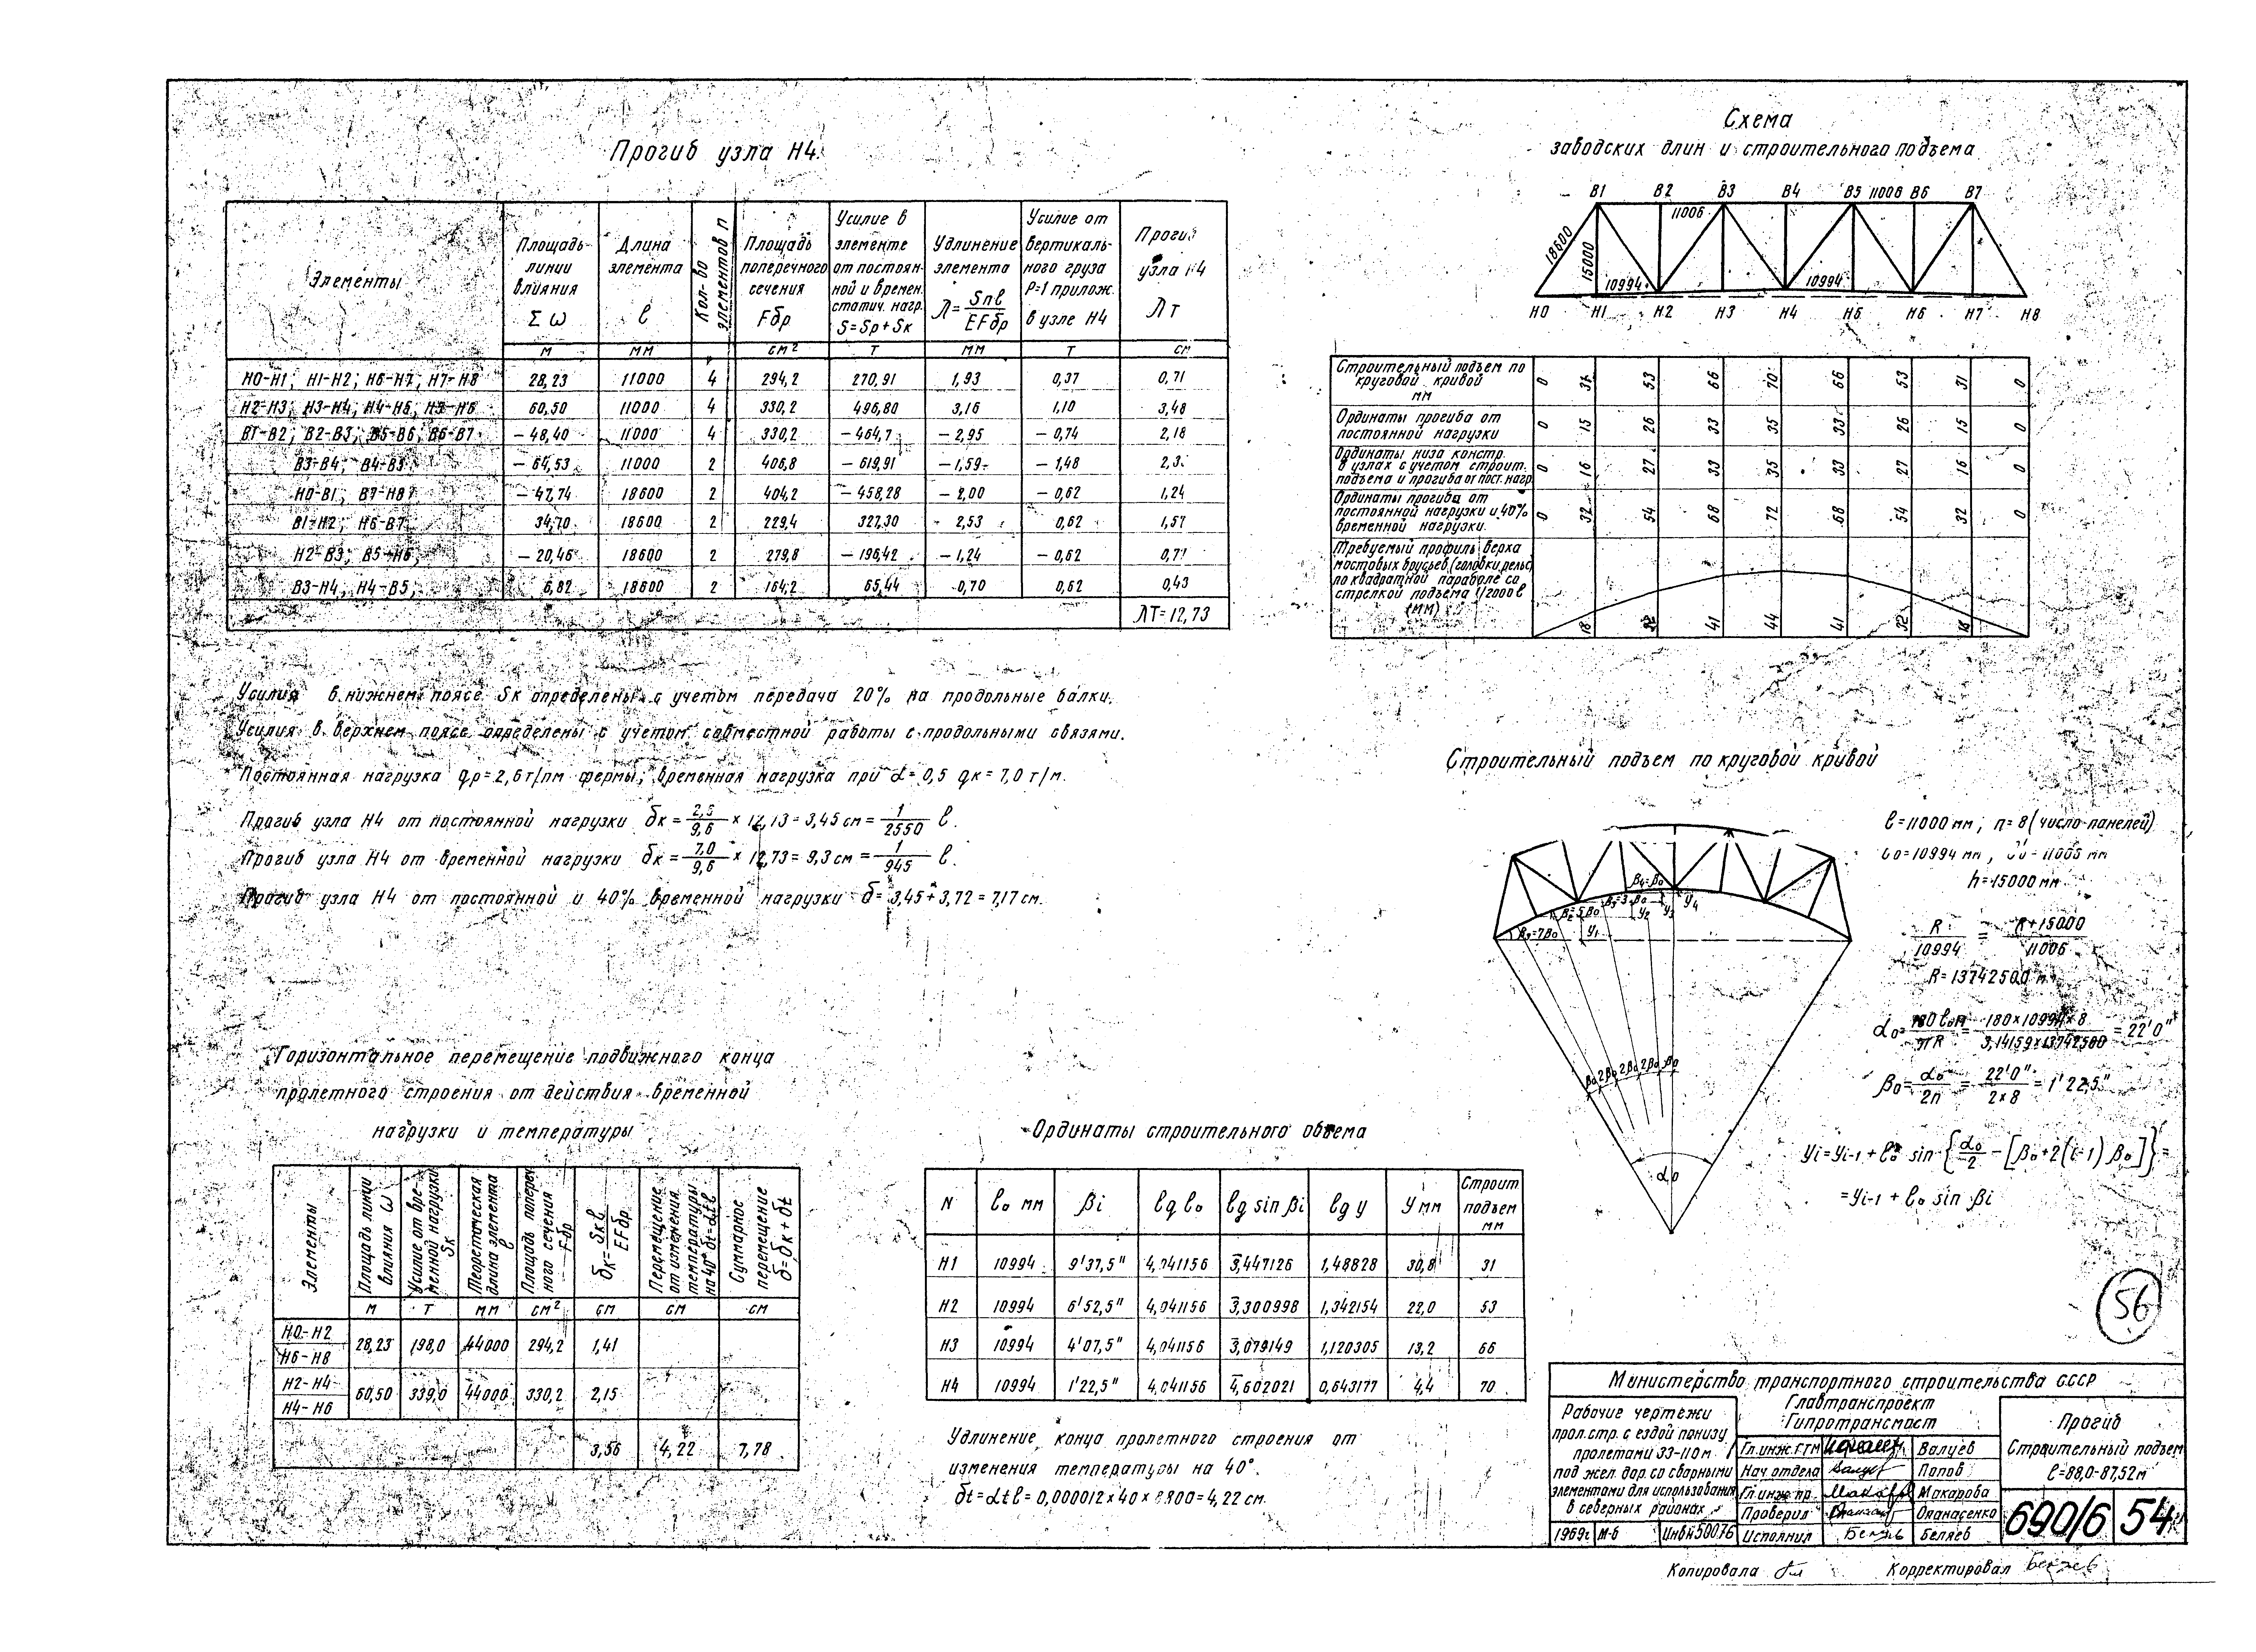 Прогиб узла Н4.
Элементы | Площадь линии влияния Σω | Длина элемента l | Кол-во элементов n | Площадь поперечного сечения Fбр | Усилие в элементе от постоян-ной и времен. статич. нагр. S=Sp+Sк | Удлинение элемента Л=Snl/EFбр | Усилие от вертикаль-ного груза P=1 прилож. в узле Н4 | Прогиб узла Н4 ЛТ
м | мм | см² | т | мм | т | см
Н0-Н1; Н1-Н2; Н6-Н7; Н7-Н8 | 28,23 | 11000 | 4 | 294,2 | 270,91 | 1,93 | 0,37 | 0,71
Н2-Н3; Н3-Н4; Н4-Н5; Н5-Н6 | 60,50 | 11000 | 4 | 330,2 | 496,80 | 3,16 | 1,10 | 3,48
В1-В2; В2-В3; В5-В6; В6-В7 | -48,40 | 11000 | 4 | 330,2 | -464,7 | -2,95 | -0,74 | 2,18
В3-В4; В4-В5 | -64,53 | 11000 | 2 | 406,8 | -619,91 | -1,59 | -1,48 | 2,3
Н0-В1; В7-Н8 | -47,74 | 18600 | 2 | 404,2 | -458,28 | -2,00 | -0,62 | 1,24
В1-Н2; Н6-В7 | 34,70 | 18600 | 2 | 229,4 | 327,30 | 2,53 | 0,62 | 1,57
Н2-В3; В5-Н6; | -20,46 | 18600 | 2 | 279,8 | -196,42 | -1,24 | -0,62 | 0,77
В3-Н4; Н4-В5; | 6,82 | 18600 | 2 | 164,2 | 65,44 | 0,70 | 0,62 | 0,43
ЛТ=12,73
Усилия в нижнем поясе Sк определены с учетом передача 20% на продольные балки.
Усилия в верхнем поясе определены с учетом совместной работы с продольными связями.
Постоянная нагрузка qр=2,6т/пм фермы; временная нагрузка при α=0,5 qк=7,0 т/м.
Прогиб узла Н4 от постоянной нагрузки δк = 2,6/9,6 × 12,73 = 3,45 см = 1/2550 l.
Прогиб узла Н4 от временной нагрузки δк = 7,0/9,6 × 12,73 = 9,3 см = 1/945 l.
Прогиб узла Н4 от постоянной и 40% временной нагрузки δ = 3,45+3,72 = 7,17 см.
Схема
заводских длин и строительного подъема
В1 В2 В3 В4 В5 11006 В6 В7
11006
18600 15000
10994 10994
Н0 Н1 Н2 Н3 Н4 Н5 Н6 Н7 Н8
Строительный подъем по круговой кривой мм | 0 | 31 | 53 | 66 | 70 | 66 | 53 | 31 | 0
Ординаты прогиба от постоянной нагрузки | 0 | 15 | 26 | 33 | 35 | 33 | 26 | 15 | 0
Ординаты низа констр. в узлах с учетом строит. подъема и прогиба от пост. нагр. | 0 | 16 | 27 | 33 | 35 | 33 | 27 | 16 | 0
Ординаты прогиба от постоянной нагрузки и 40% временной нагрузки. | 0 | 32 | 54 | 68 | 72 | 68 | 54 | 32 | 0
Требуемый профиль верха мостовых брусьев (головки рельс) по квадратной параболе со стрелкой подъема 1/2000 l (мм) | 18 | 32 | 41 | 44 | 41 | 32 | 18
Строительный подъем по круговой кривой
l=11000 мм; n=8 (число панелей)
l0=10994 мм,
h=15000 мм
R/10994 = R+15000/11006
R=13742500 м
α0=180 l0n/πR = 180×10994×8/3,14159×13742500 = 22'0"
β0=α0/2n = 22'0"/2×8 = 1'22,5"
yi=yi-1+l0 sin{α0/2-[β0+2(i-1)β0]}=
=yi-1+l0 sin βi
β4=β0
β3=3β0
β2=5β0
β1=7β0
y1 y2 y3 y4
β0 2β0 2β0 2β0 β0
α0
Горизонтальное перемещение подвижного конца
пролетного строения от действия временной
нагрузки и температуры
Элементы | Площадь линии влияния ω | Усилие от вре-менной нагрузки Sк | Теоретическая длина элемента l | Площадь попереч-ного сечения Fбр | δк=Sкl/EFбр | Перемещение от изменения температуры на 40° δt=αtl | Суммарное перемещение δ=δк+δt
м | т | мм | см² | см | см | см
Н0-Н2 Н6-Н8 | 28,23 | 198,0 | 44000 | 294,2 | 1,41
Н2-Н4 Н4-Н6 | 60,50 | 339,0 | 44000 | 330,2 | 2,15
3,56 | 4,22 | 7,78
Ординаты строительного объема
N | l0 мм | βi | lg l0 | lg sin βi | lg y | y мм | Строит подъем мм
Н1 | 10994 | 9'37,5" | 4,041156 | 3̄,447126 | 1,48828 | 30,8 | 31
Н2 | 10994 | 6'52,5" | 4,041156 | 3̄,300998 | 1,342154 | 22,0 | 53
Н3 | 10994 | 4'07,5" | 4,041156 | 3̄,079149 | 1,120305 | 13,2 | 66
Н4 | 10994 | 1'22,5" | 4,041156 | 4̄,602021 | 0,643177 | 4,4 | 70
Удлинение конца пролетного строения от
изменения температуры на 40°.
δt=αtl=0,000012×40×8800=4,22 см.
56
Министерство транспортного строительства СССР
Рабочие чертежи
прол.стр. с ездой понизу
пролетами 33-110м
под жел. дор. со сварными
элементами для использования
в северных районах
1969г. М-б Инв№50076
Главтранспроект
Гипротрансмост
Гл.инж.ГТМ Валуев
Нач.отдела Попов
Гл.инж.пр. Макарова
Проверил Опанасенко
Исполнил Беляев
Прогиб
Строительный подъем
l=88,0-87,52м
690/6 54
Копировала Корректировал